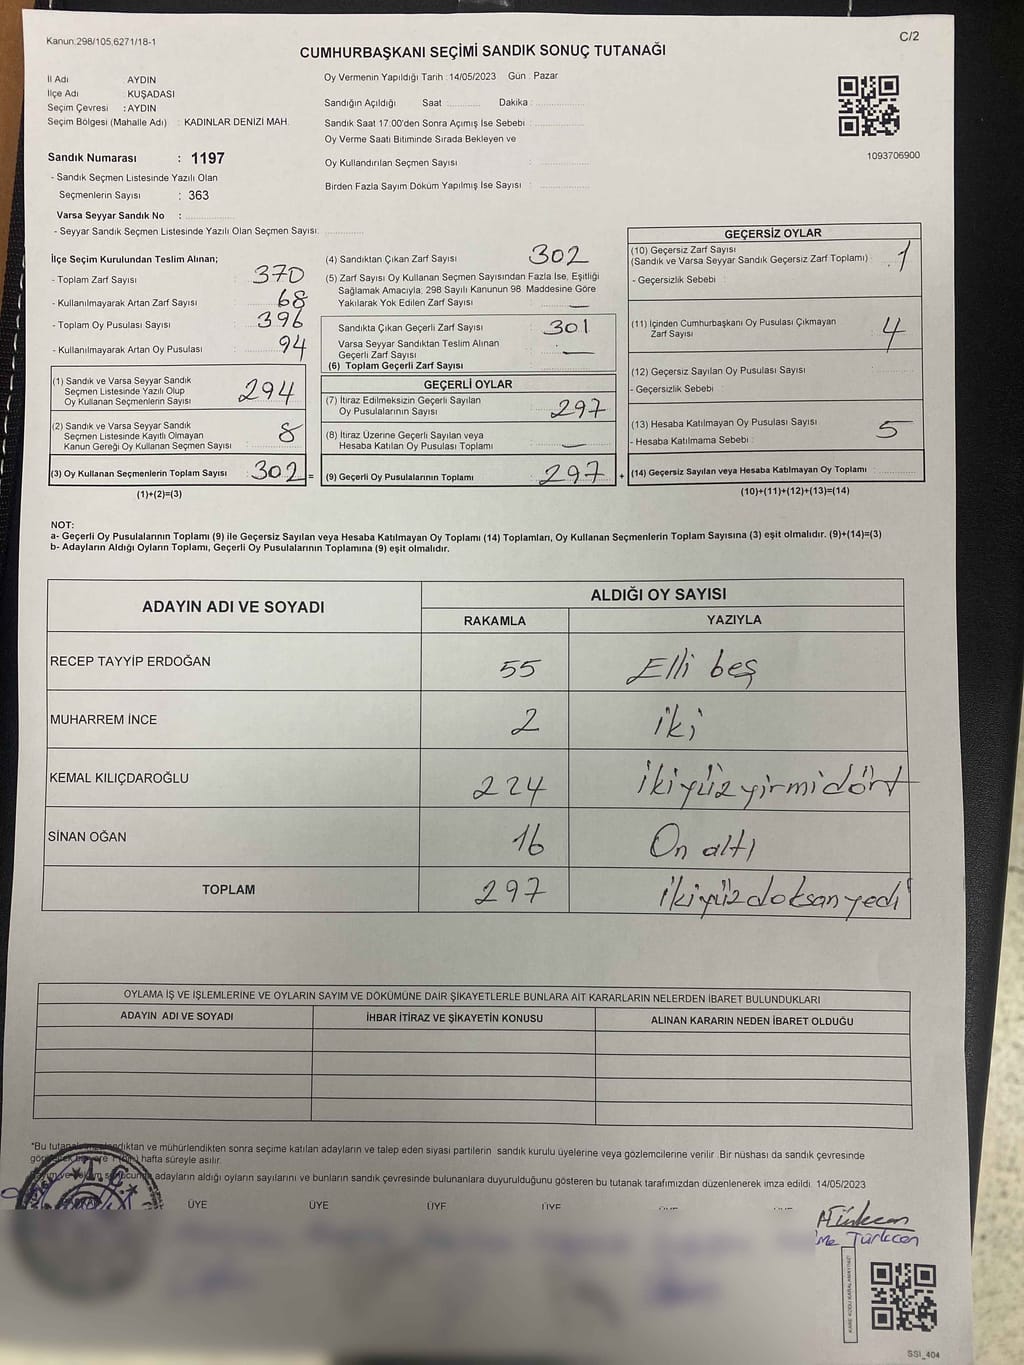 Kanun:298/105,6271/18-1
C/2
CUMHURBAŞKANI SEÇİMİ SANDIK SONUÇ TUTANAĞI
İl Adı : AYDIN
İlçe Adı : KUŞADASI
Seçim Çevresi : AYDIN
Seçim Bölgesi (Mahalle Adı) : KADINLAR DENİZİ MAH.
Sandık Numarası : 1197
- Sandık Seçmen Listesinde Yazılı Olan
Seçmenlerin Sayısı : 363
Varsa Seyyar Sandık No :
- Seyyar Sandık Seçmen Listesinde Yazılı Olan Seçmen Sayısı:
Oy Vermenin Yapıldığı Tarih : 14/05/2023 Gün : Pazar
Sandığın Açıldığı Saat Dakika :
Sandık Saat 17:00'den Sonra Açımış İse Sebebi :
Oy Verme Saati Bitiminde Sırada Bekleyen ve
Oy Kullandırılan Seçmen Sayısı :
Birden Fazla Sayım Döküm Yapılmış İse Sayısı :
1093706900
İlçe Seçim Kurulundan Teslim Alınan;
- Toplam Zarf Sayısı : 370
- Kullanılmayarak Artan Zarf Sayısı : 68
- Toplam Oy Pusulası Sayısı : 396
- Kullanılmayarak Artan Oy Pusulası : 94
(1) Sandık ve Varsa Seyyar Sandık
Seçmen Listesinde Yazılı Olup
Oy Kullanan Seçmenlerin Sayısı : 294
(2) Sandık ve Varsa Seyyar Sandık
Seçmen Listesinde Kayıtlı Olmayan
Kanun Gereği Oy Kullanan Seçmen Sayısı : 8
(3) Oy Kullanan Seçmenlerin Toplam Sayısı : 302 =
(1)+(2)=(3)
(4) Sandıktan Çıkan Zarf Sayısı : 302
(5) Zarf Sayısı Oy Kullanan Seçmen Sayısından Fazla İse, Eşitliği
Sağlamak Amacıyla, 298 Sayılı Kanunun 98. Maddesine Göre
Yakılarak Yok Edilen Zarf Sayısı : —
Sandıkta Çıkan Geçerli Zarf Sayısı : 301
Varsa Seyyar Sandıktan Teslim Alınan
Geçerli Zarf Sayısı : —
(6) Toplam Geçerli Zarf Sayısı
GEÇERLİ OYLAR
(7) İtiraz Edilmeksizin Geçerli Sayılan
Oy Pusulalarının Sayısı : 297
(8) İtiraz Üzerine Geçerli Sayılan veya
Hesaba Katılan Oy Pusulası Toplamı : —
(9) Geçerli Oy Pusulalarının Toplamı : 297 +
GEÇERSİZ OYLAR
(10) Geçersiz Zarf Sayısı
(Sandık ve Varsa Seyyar Sandık Geçersiz Zarf Toplamı) : 1
- Geçersizlik Sebebi :
(11) İçinden Cumhurbaşkanı Oy Pusulası Çıkmayan
Zarf Sayısı : 4
(12) Geçersiz Sayılan Oy Pusulası Sayısı
- Geçersizlik Sebebi :
(13) Hesaba Katılmayan Oy Pusulası Sayısı
- Hesaba Katılmama Sebebi : 5
(14) Geçersiz Sayılan veya Hesaba Katılmayan Oy Toplamı :
(10)+(11)+(12)+(13)=(14)
NOT:
a- Geçerli Oy Pusulalarının Toplamı (9) ile Geçersiz Sayılan veya Hesaba Katılmayan Oy Toplamı (14) Toplamları, Oy Kullanan Seçmenlerin Toplam Sayısına (3) eşit olmalıdır. (9)+(14)=(3)
b- Adayların Aldığı Oyların Toplamı, Geçerli Oy Pusulalarının Toplamına (9) eşit olmalıdır.
ADAYIN ADI VE SOYADI
ALDIĞI OY SAYISI
RAKAMLA YAZIYLA
RECEP TAYYİP ERDOĞAN 55 Elli beş
MUHARREM İNCE 2 iki
KEMAL KILIÇDAROĞLU 224 ikiyüzyirmidört
SİNAN OĞAN 16 On altı
TOPLAM 297 ikiyüzdoksanyedi
OYLAMA İŞ VE İŞLEMLERİNE VE OYLARIN SAYIM VE DÖKÜMÜNE DAİR ŞİKAYETLERLE BUNLARA AİT KARARLARIN NELERDEN İBARET BULUNDUKLARI
ADAYIN ADI VE SOYADI İHBAR İTİRAZ VE ŞİKAYETİN KONUSU ALINAN KARARIN NEDEN İBARET OLDUĞU
*Bu hafta süreyle asılır. mühürlendikten sonra seçime katılan adayların ve talep eden siyasi partilerin sandık kurulu üyelerine veya gözlemcilerine verilir. Bir nüshası da sandık çevresinde
adayların aldığı oyların sayılarını ve bunların sandık çevresinde bulunanlara duyurulduğunu gösteren bu tutanak tarafımızdan düzenlenerek imza edildi. 14/05/2023
T.C.
ÜYE ÜYE ÜYE ÜYE
Türkcen
SSI_404